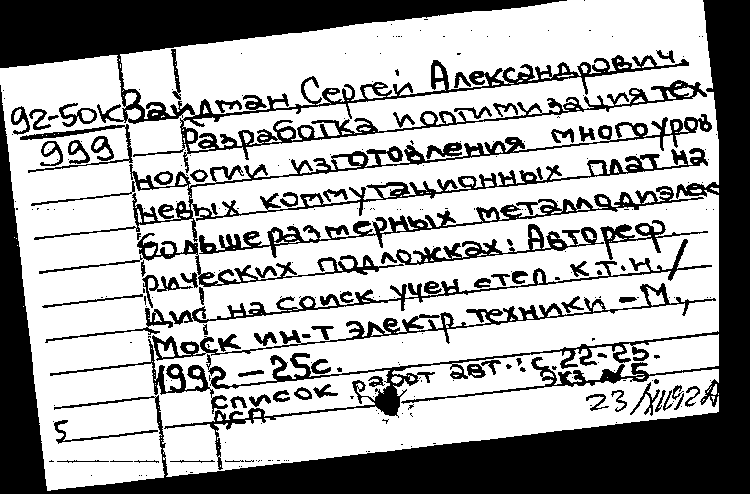 92-50К
999
Зайдман, Сергей Александрович.
Разработка и оптимизация тех-
нологии изготовления многоуров
невых коммутационных плат на
большеразмерных металлодиэлек
рических подложках: Автореф.
дис. на соиск учен. степ. к.т.н. /
Моск ин-т электр. техники. - М.,
1992. - 25с.
список работ авт.: с. 22-25.
дсп. экз. №5.
5